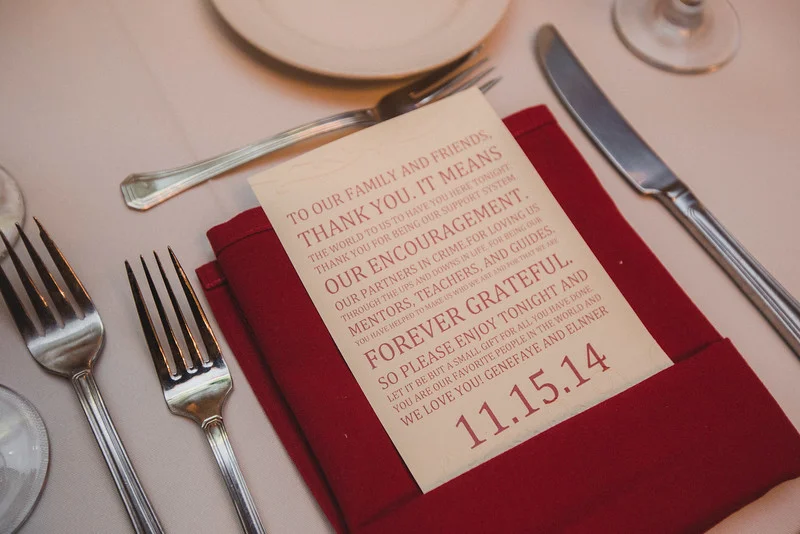 TO OUR FAMILY AND FRIENDS,
THANK YOU. IT MEANS
THE WORLD TO US TO HAVE YOU HERE TONIGHT
THANK YOU FOR BEING OUR SUPPORT SYSTEM
OUR ENCOURAGEMENT.
OUR PARTNERS IN CRIME FOR LOVING US
THROUGH THE UPS AND DOWNS IN LIFE. FOR BEING OUR
MENTORS, TEACHERS, AND GUIDES.
YOU HAVE HELPED TO MAKE US WHO WE ARE AND FOR THAT WE ARE
FOREVER GRATEFUL.
SO PLEASE ENJOY TONIGHT AND
LET IT BE BUT A SMALL GIFT FOR ALL YOU HAVE DONE.
YOU ARE OUR FAVORITE PEOPLE IN THE WORLD AND
WE LOVE YOU! GENEFAYE AND ELNNER
11.15.14